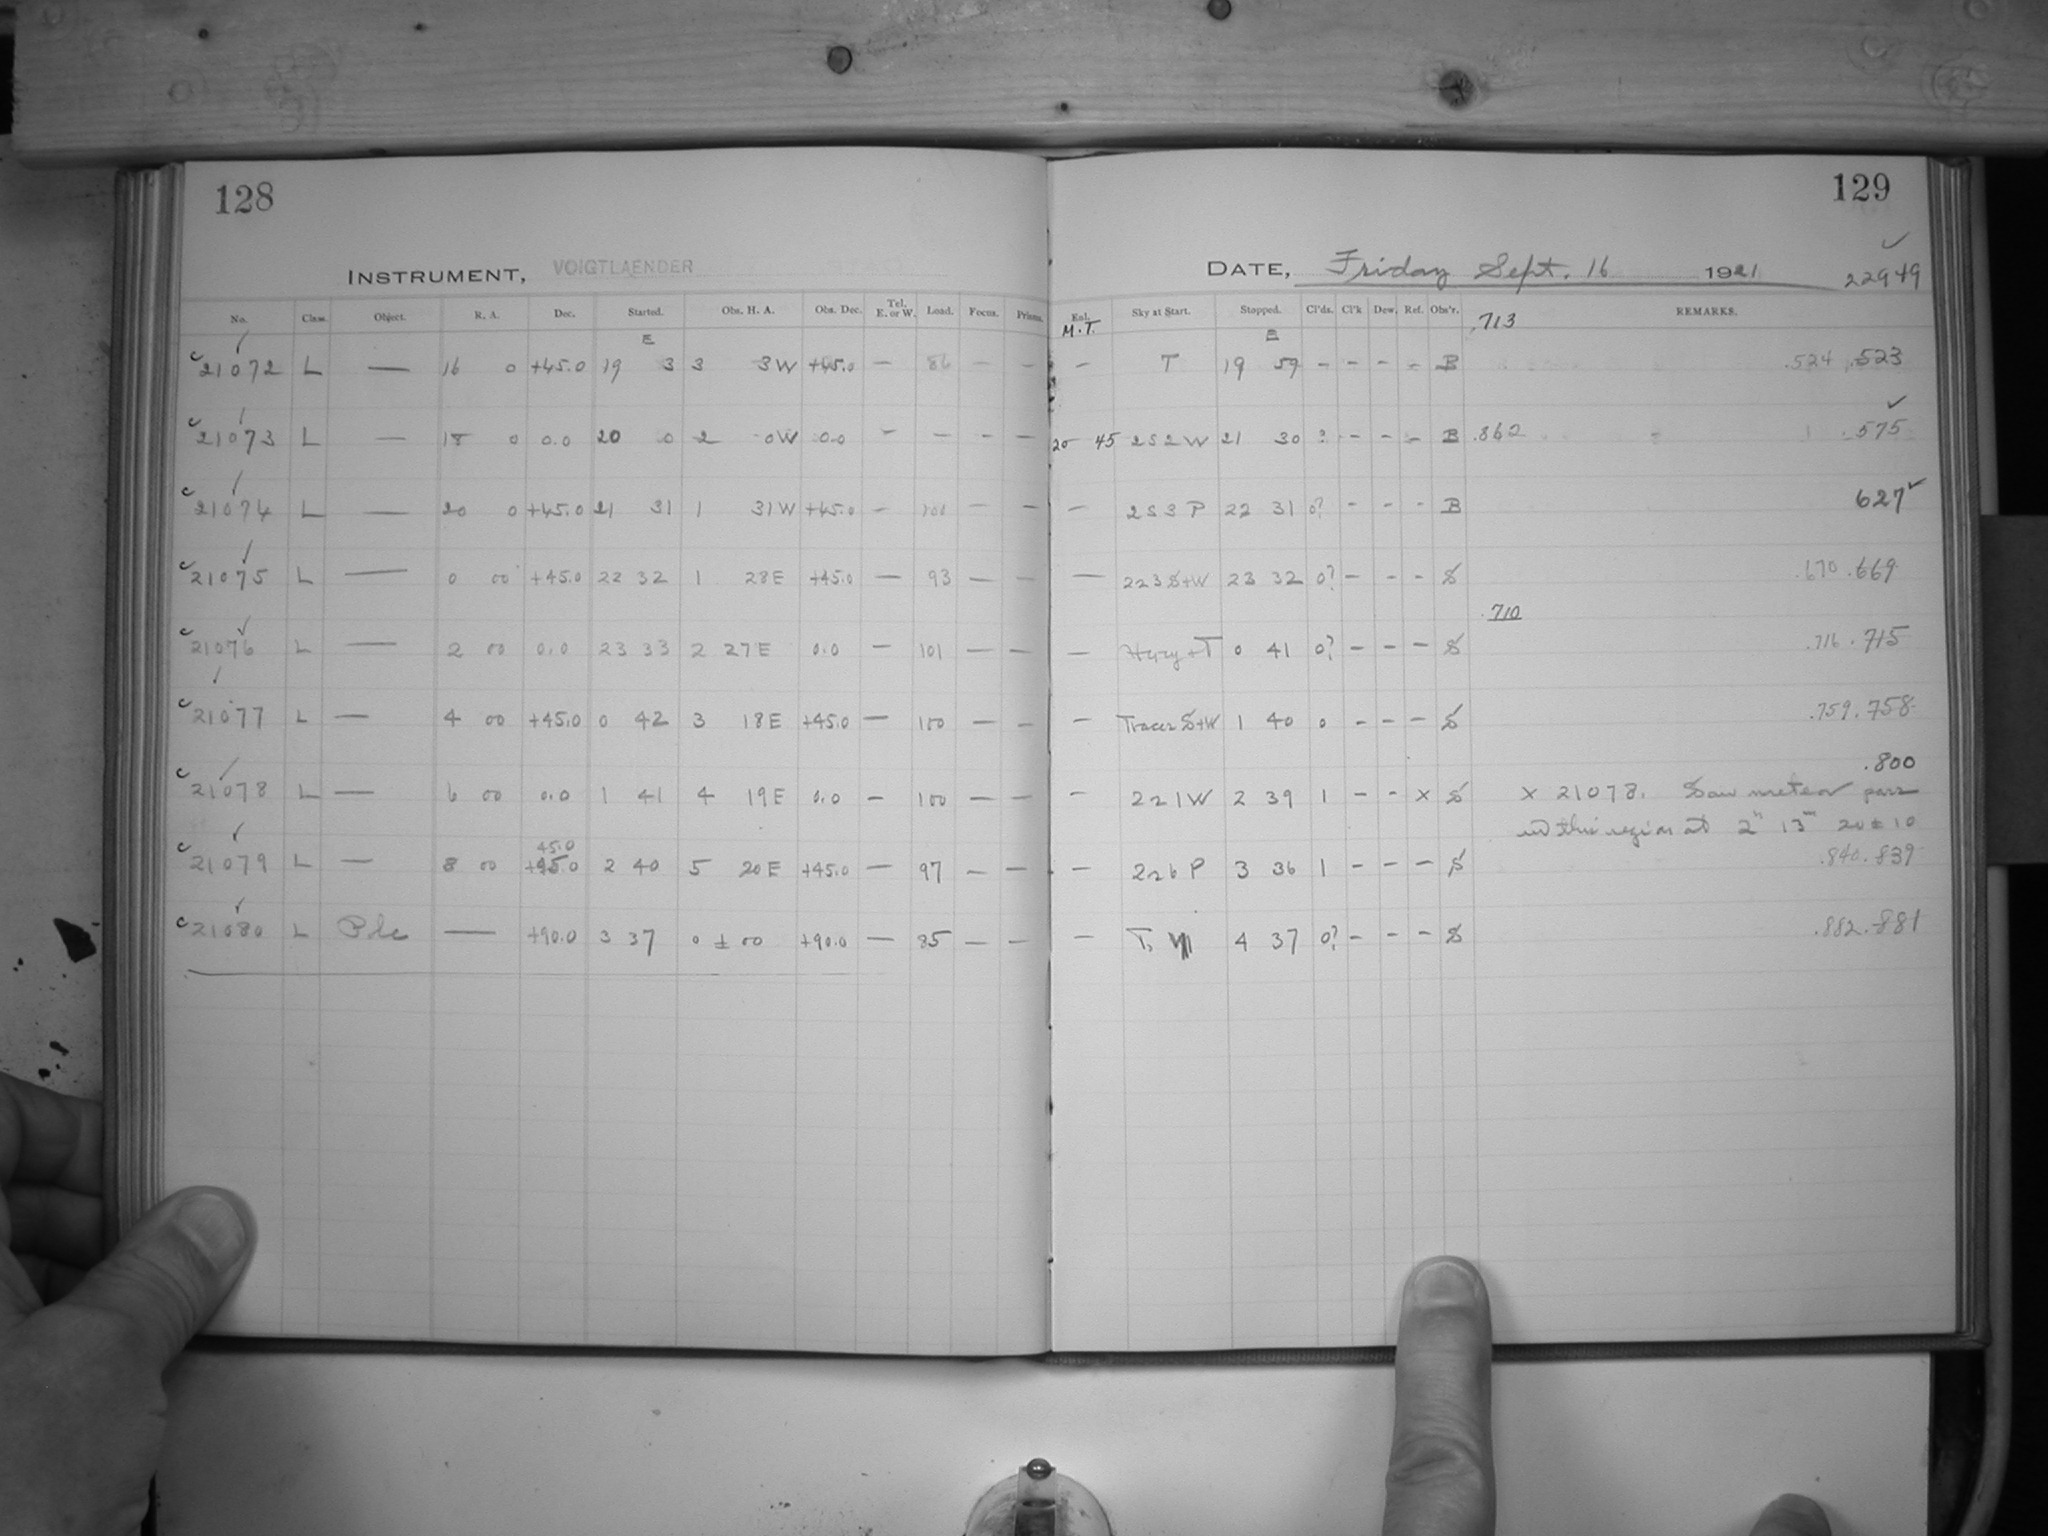 128
129
INSTRUMENT, VOIGTLAENDER
DATE, Friday Sept. 16 1921
22949
No. Class. Object. R. A. Dec. Started. Obs. H. A. Obs. Dec. Tel. E. or W. Load. Focus. Prisms. Enl. Sky at Start. Stopped. Cl'ds. Cl'k Dew. Ref. Obs'r. REMARKS.
E M.T. E .713
21072 L — 16 0 +45.0 19 3 3 3W +45.0 — 86 — — — T 19 59 — — — — B .524 .523
21073 L — 18 0 0.0 20 0 2 0W 0.0 — — — — 20 45 252W 21 30 ? — — — B .862 .575
21074 L — 20 0 +45.0 21 31 1 31W +45.0 — 100 — — — 253 P 22 31 0? — — — B 627
21075 L — 0 00 +45.0 22 32 1 28E +45.0 — 93 — — — 223 S+W 23 32 0? — — — S .670 .669
.710
21076 L — 2 00 0.0 23 33 2 27E 0.0 — 101 — — — 0 41 0? — — — S .716 .715
21077 L — 4 00 +45.0 0 42 3 18E +45.0 — 100 — — — Traces S+W 1 40 0 — — — S .759 .758
.800
21078 L — 6 00 0.0 1 41 4 19E 0.0 — 100 — — — 221W 2 39 1 — — X S X 21078. Saw meteor pass
in this region at 2h 13m 20 ± 10
45.0
21079 L — 8 00 +45.0 2 40 5 20E +45.0 — 97 — — — 226 P 3 36 1 — — — S .840 .839
21080 L Pole — +90.0 3 37 0 ± 00 +90.0 — 85 — — — T. 4 37 0? — — — S .882 .881